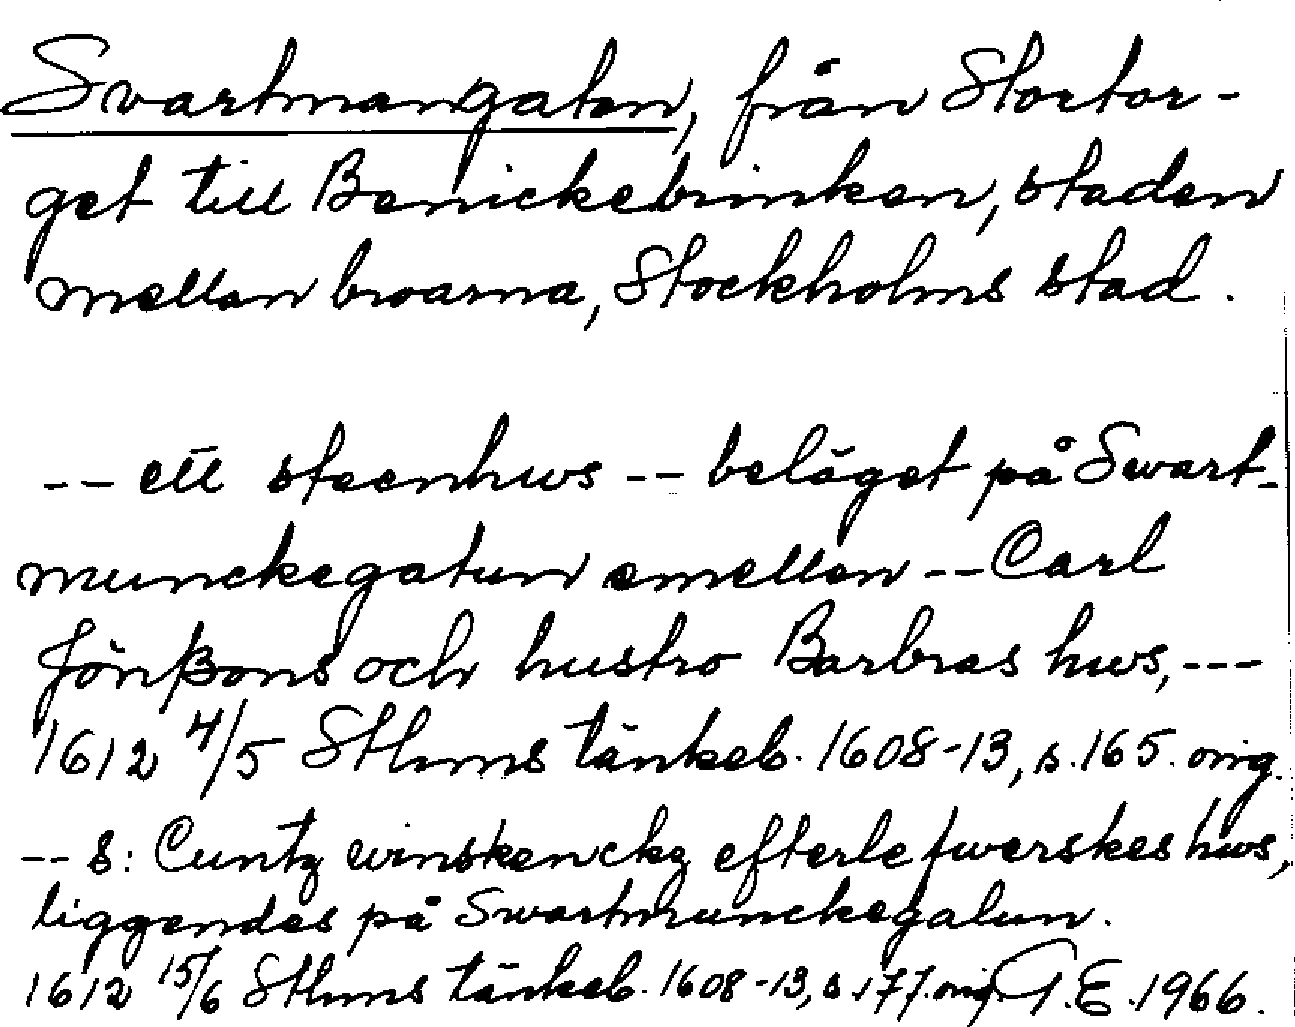 Svartmangatan, från Stortor-
get till Benickebrinken, staden
mellan broarna, Stockholms stad.
-- ett steenhws -- beläget på Swart-
munckegatun emellan -- Carl
Jönßons och hustro Barbras hws, ---
1612 4/5 Sthms tänkeb. 1608-13, s. 165. orig.
-- S: Cuntz winskenckz efterlefwerskes hws,
liggendes på Swartmunckegatun.
1612 15/6 Sthms tänkeb. 1608-13, s. 177. orig. G.E. 1966.